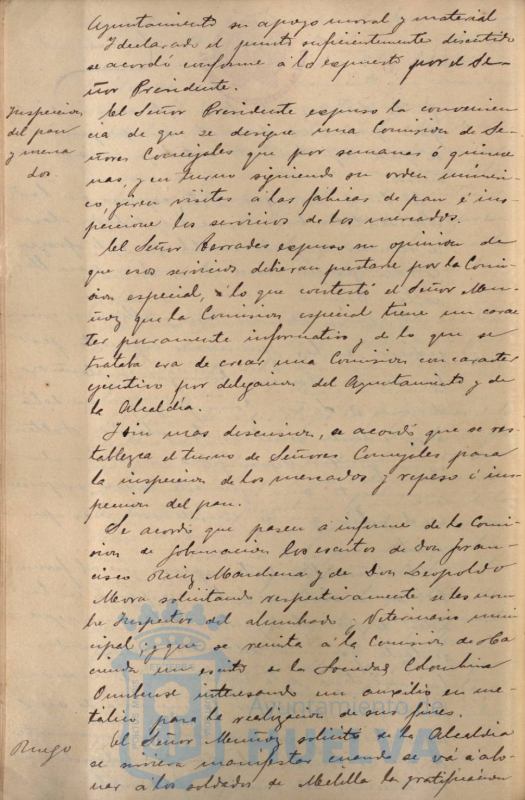 Ayuntamiento su apoyo moral y material
Y declarado el punto suficientemente discutido
se acordó conforme á lo espuesto por el Se-
ñor Presidente.
Inspeccion
del pan
y merca
dos
El Señor Presidente espuso la convenien
cia de que se designe una Comision de Se-
ñores Concejales que por semanas ó quince
nas, y en turno siguiendo su orden numéri-
co, giren visitas á las fábricas de pan é ins-
peccione los servicios de los mercados.
El Señor Borrades espuso su opinion de
que esos servicios debieran prestarse por la Comi-
sion especial, á lo que contestó el Señor Mu-
ñoz que la Comision especial tiene un carac
ter puramente informativo y de lo que se
trataba era de crear una Comision con caracter
ejecutivo por delegacion del Ayuntamiento y de
la Alcaldía.
Y sin mas discusion, se acordó que se res-
tablezca el turno de Señores Concejales para
la inspeccion de los mercados y repeso é ins-
peccion del pan.
Se acordó que pasen á informe de la Comi-
sion de Gobernacion los escritos de Don Fran-
cisco Ruiz Marchena y de Don Leopoldo
Mora solicitando respectivamente se les nom-
bre Inspector del alumbrado y Veterinario muni
cipal; y que se remita á la Comision de Ha
cienda un escrito de la Sociedad Colombina
Onubense interesando un auxilio en me-
tálico para la realizacion de sus fines.
Ruego
El Señor Muñoz solicitó de la Alcaldia
se sirviera manifestar cuando se vá á abo-
nar á los soldados de Melilla la gratificacion
Ayuntamiento de
HUELVA